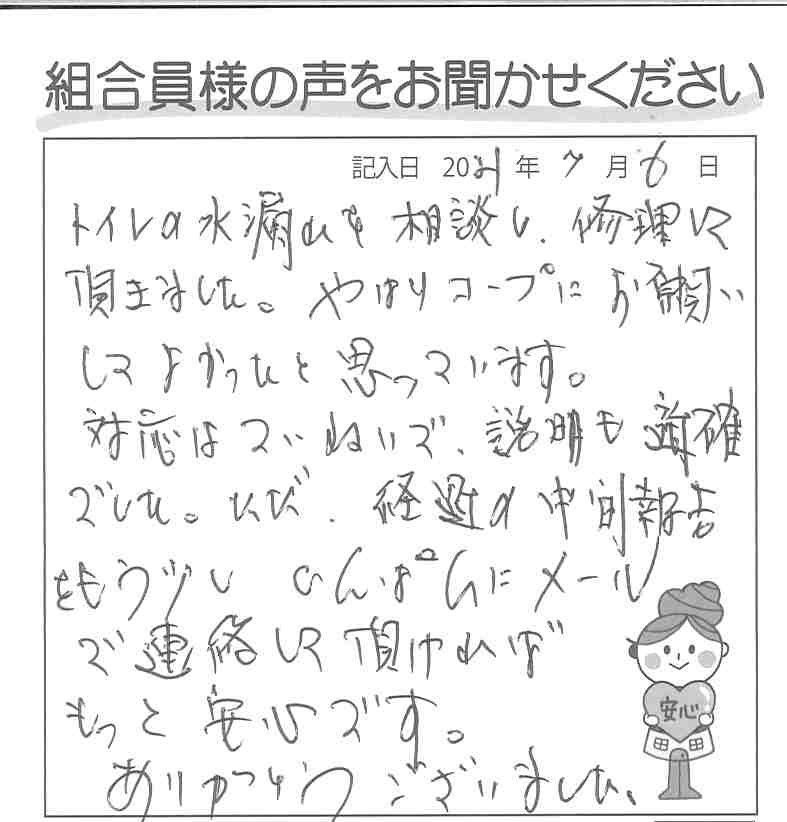 組合員様の声をお聞かせください
記入日 2021年 7月 6日
トイレの水漏れを相談し、修理して
頂きました。やはりコープにお願い
してよかったと思っています。
対応はていねいで、説明も適確
でした。ただ、経過の中間報告
をもう少し ひんぱんにメール
で連絡して頂ければ
もっと安心です。
ありがとうございました。
安心